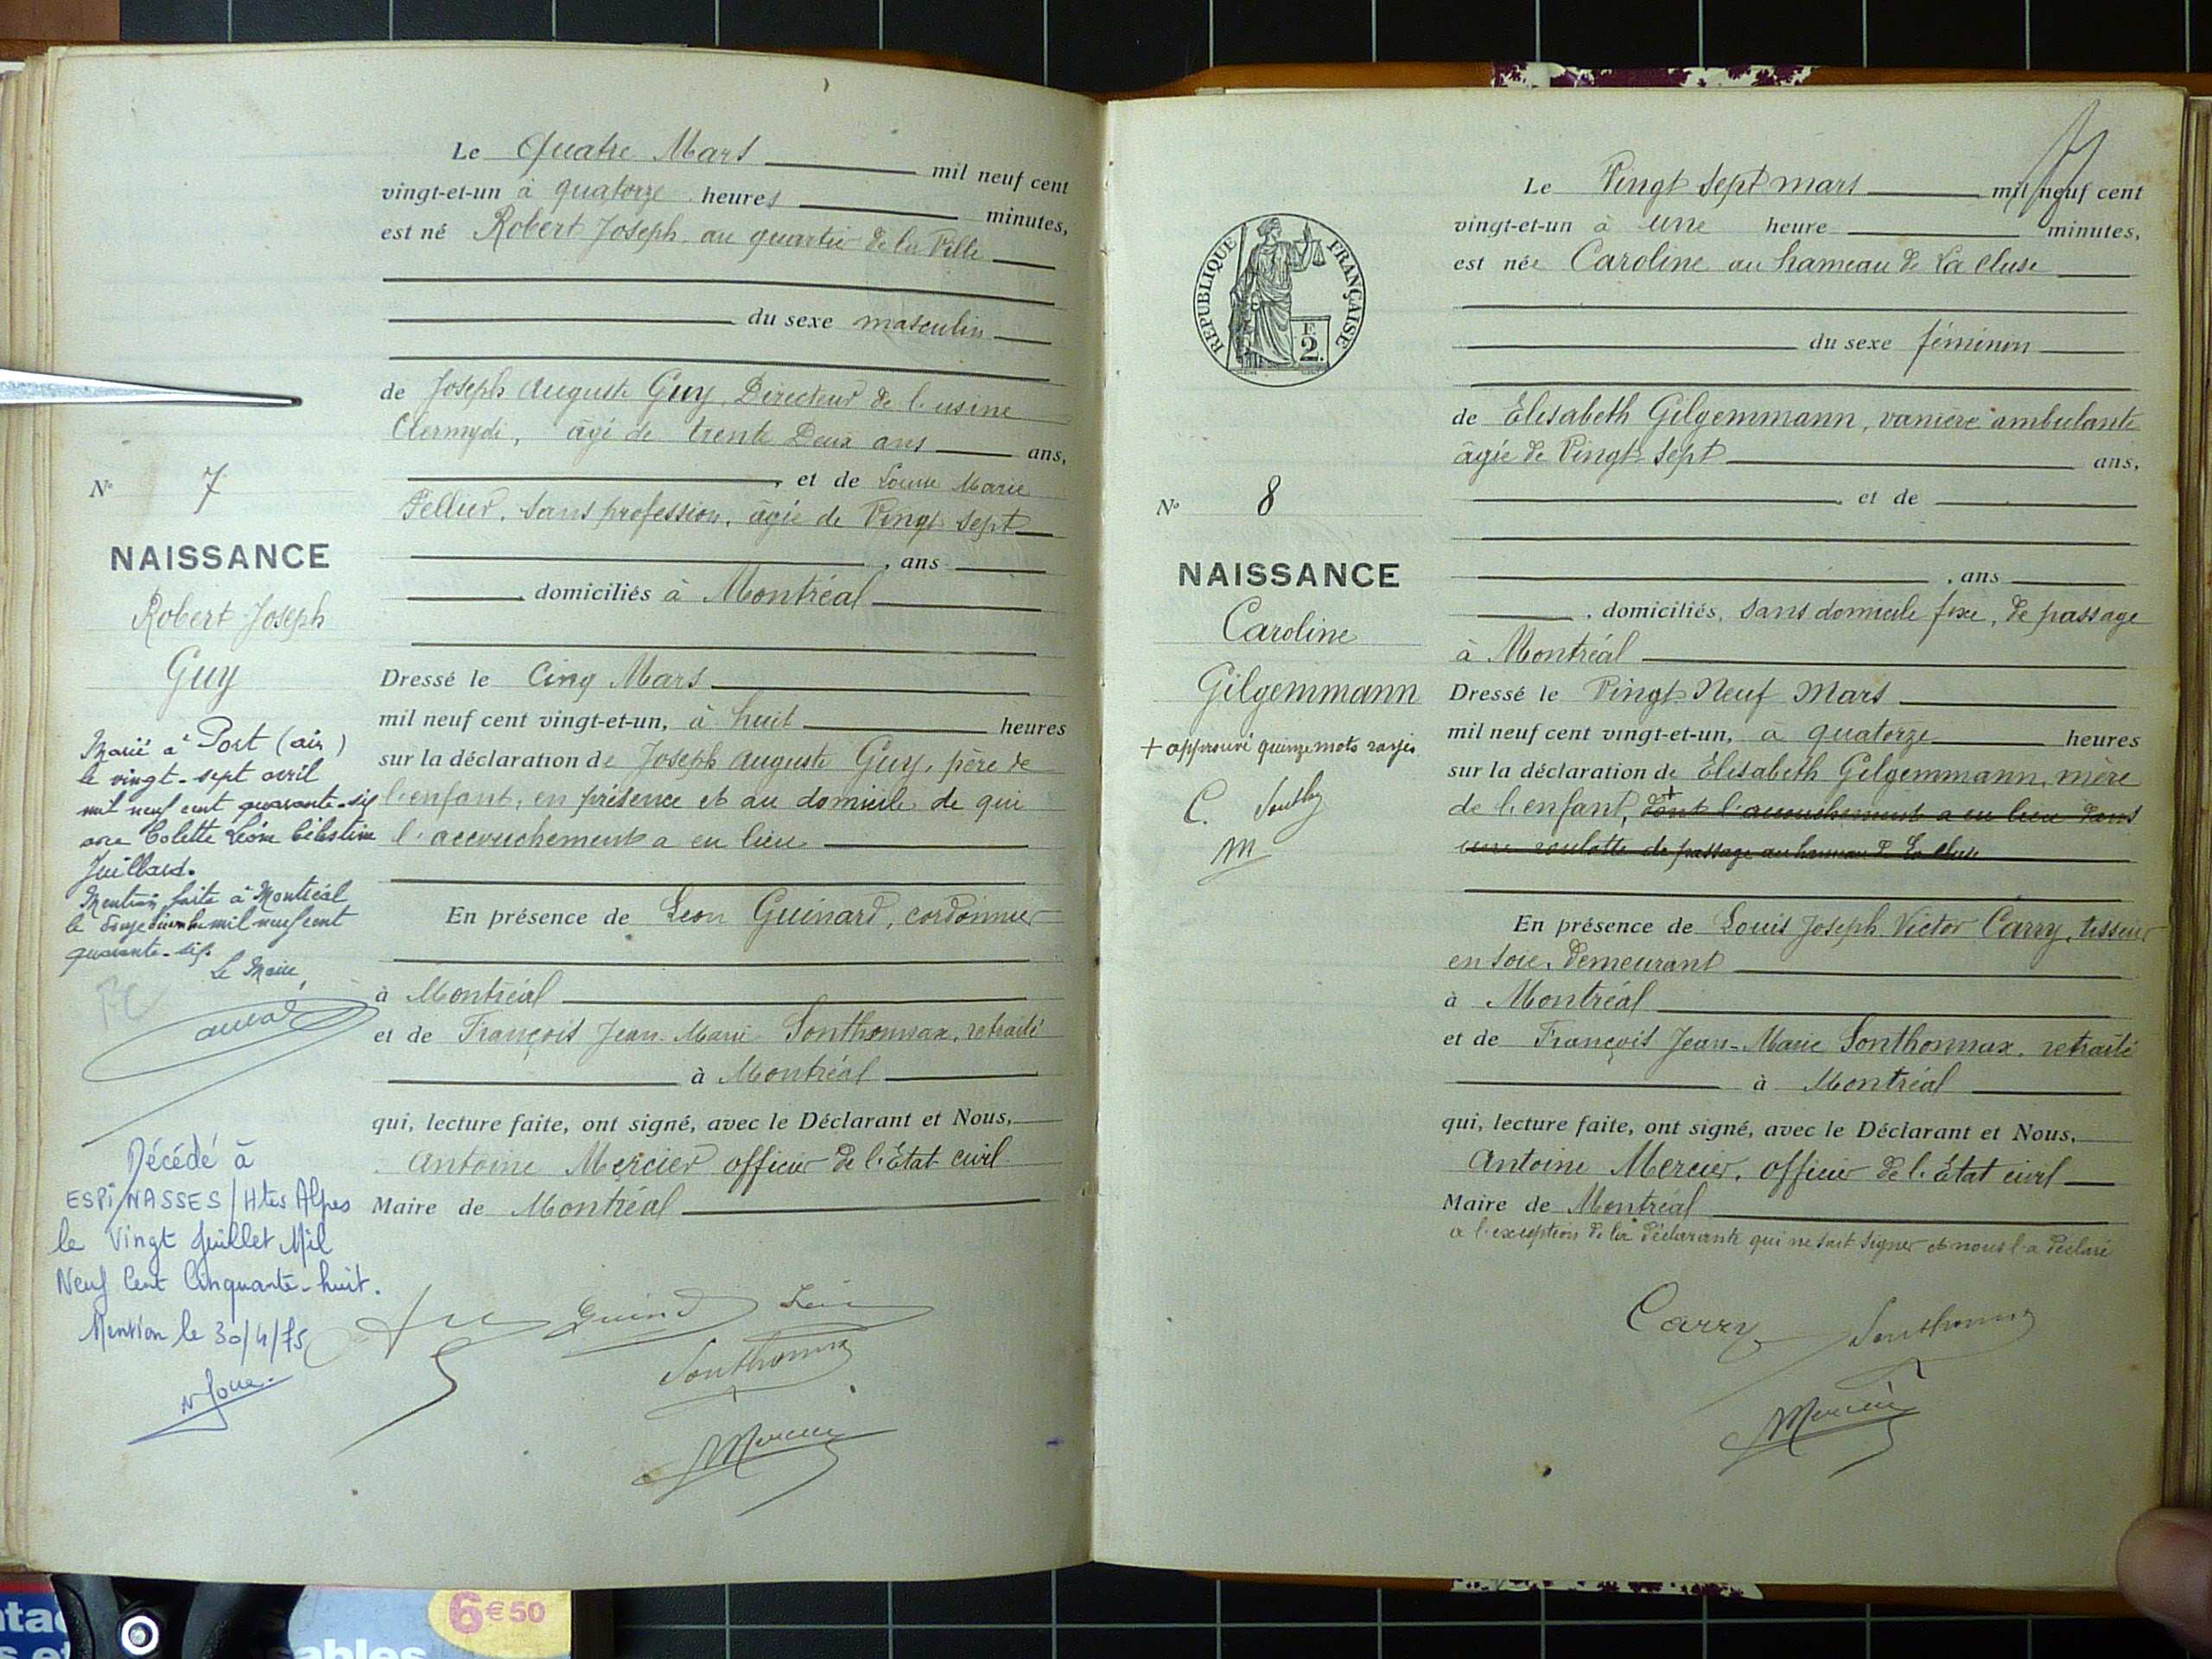 Le Quatre Mars mil neuf cent
vingt-et-un à quatorze heures minutes,
est né Robert Joseph, au quartier de la Ville
du sexe masculin
de Joseph Auguste Guy, Directeur de l'usine
âgé de trente Deux ans ans,
et de Louise Marie
Pellier, sans profession, âgée de Vingt sept
, ans
domiciliés à Montréal
Dressé le Cinq Mars
mil neuf cent vingt-et-un, à huit heures
sur la déclaration de Joseph Auguste Guy, père de
l'enfant, en présence et au domicile de qui
l'accouchement a eu lieu
En présence de Léon Guinard, cordonnier
à Montréal
et de François Jean-Marie Sonthonnax, retraité
à Montréal
qui, lecture faite, ont signé, avec le Déclarant et Nous,
Antoine Mercier officier de l'État civil
Maire de Montréal
Guinard Léon
Sonthonnax
Mercier
N° 7
NAISSANCE
Robert Joseph
Guy
Marié à Port (ain)
le vingt-sept avril
mil neuf cent quarante-six
avec Colette Léonie Célestine
Juillard.
Mention faite à Montréal
le douze mil neuf cent
quarante-six.
Le Maire,
Décédé à
ESPINASSES / Htes Alpes
le Vingt Juillet Mil
Neuf Cent Cinquante-huit.
Mention le 30/4/75
REPUBLIQUE FRANÇAISE
F.
2.
N° 8
NAISSANCE
Caroline
Gilgemmann
+ approuvé quinze mots rayés
C. Sonthx
M
Le Vingt sept mars mil neuf cent
vingt-et-un à une heure minutes,
est née Caroline au hameau de La Cluse
du sexe féminin
de Élisabeth Gilgemmann, vanière ambulante
âgée de Vingt-sept ans,
et de
, ans
, domiciliés, sans domicile fixe, de passage
à Montréal
Dressé le Vingt Neuf Mars
mil neuf cent vingt-et-un, à quatorze heures
sur la déclaration de Élisabeth Gilgemmann, mère
de l'enfant, + dont l'accouchement a eu lieu dans
une roulotte de passage au hameau de La Cluse
En présence de Louis Joseph Victor Carry, tisseur
en soie, demeurant
à Montréal
et de François Jean-Marie Sonthonnax, retraité
à Montréal
qui, lecture faite, ont signé, avec le Déclarant et Nous,
Antoine Mercier, officier de l'État civil
Maire de Montréal
à l'exception de la déclarante qui ne sait signer et nous l'a déclaré
Carry Sonthonnax
Mercier
6€50